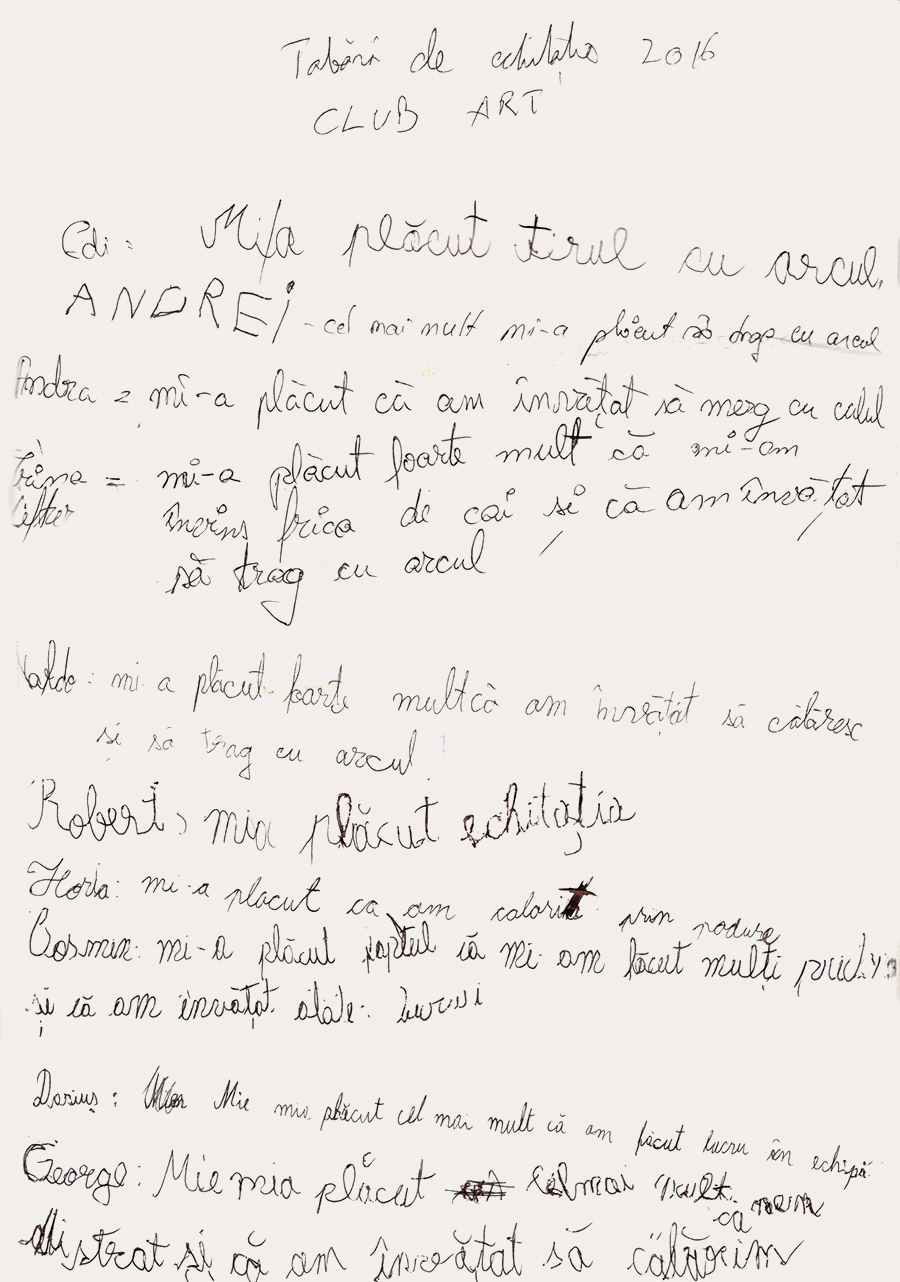 Tabără de echitație 2016
CLUB ART
Edi: Mi/a plăcut tirul cu arcul.
ANDREI - cel mai mult mi-a plăcut să trag cu arcul
Andra = mi-a plăcut că am învățat să merg cu calul
Irina = mi-a plăcut foarte mult că mi-am
învins frica de cai și că am învățat
să trag cu arcul
mi-a plăcut foarte mult că am învățat să călăresc
și să trag cu arcul!
Robert: mia plăcut echitația
Horia: mi-a placut ca am calarit prin padure
Cosmin: mi-a plăcut faptul că mi-am făcut mulți
și că am învățat atâte. lucruri
Darius: Mie mia plăcut cel mai mult că am făcut lucru în echipă
George: Mie mia plăcut cel mai mult că nem
distrat și că am învățat să călărim